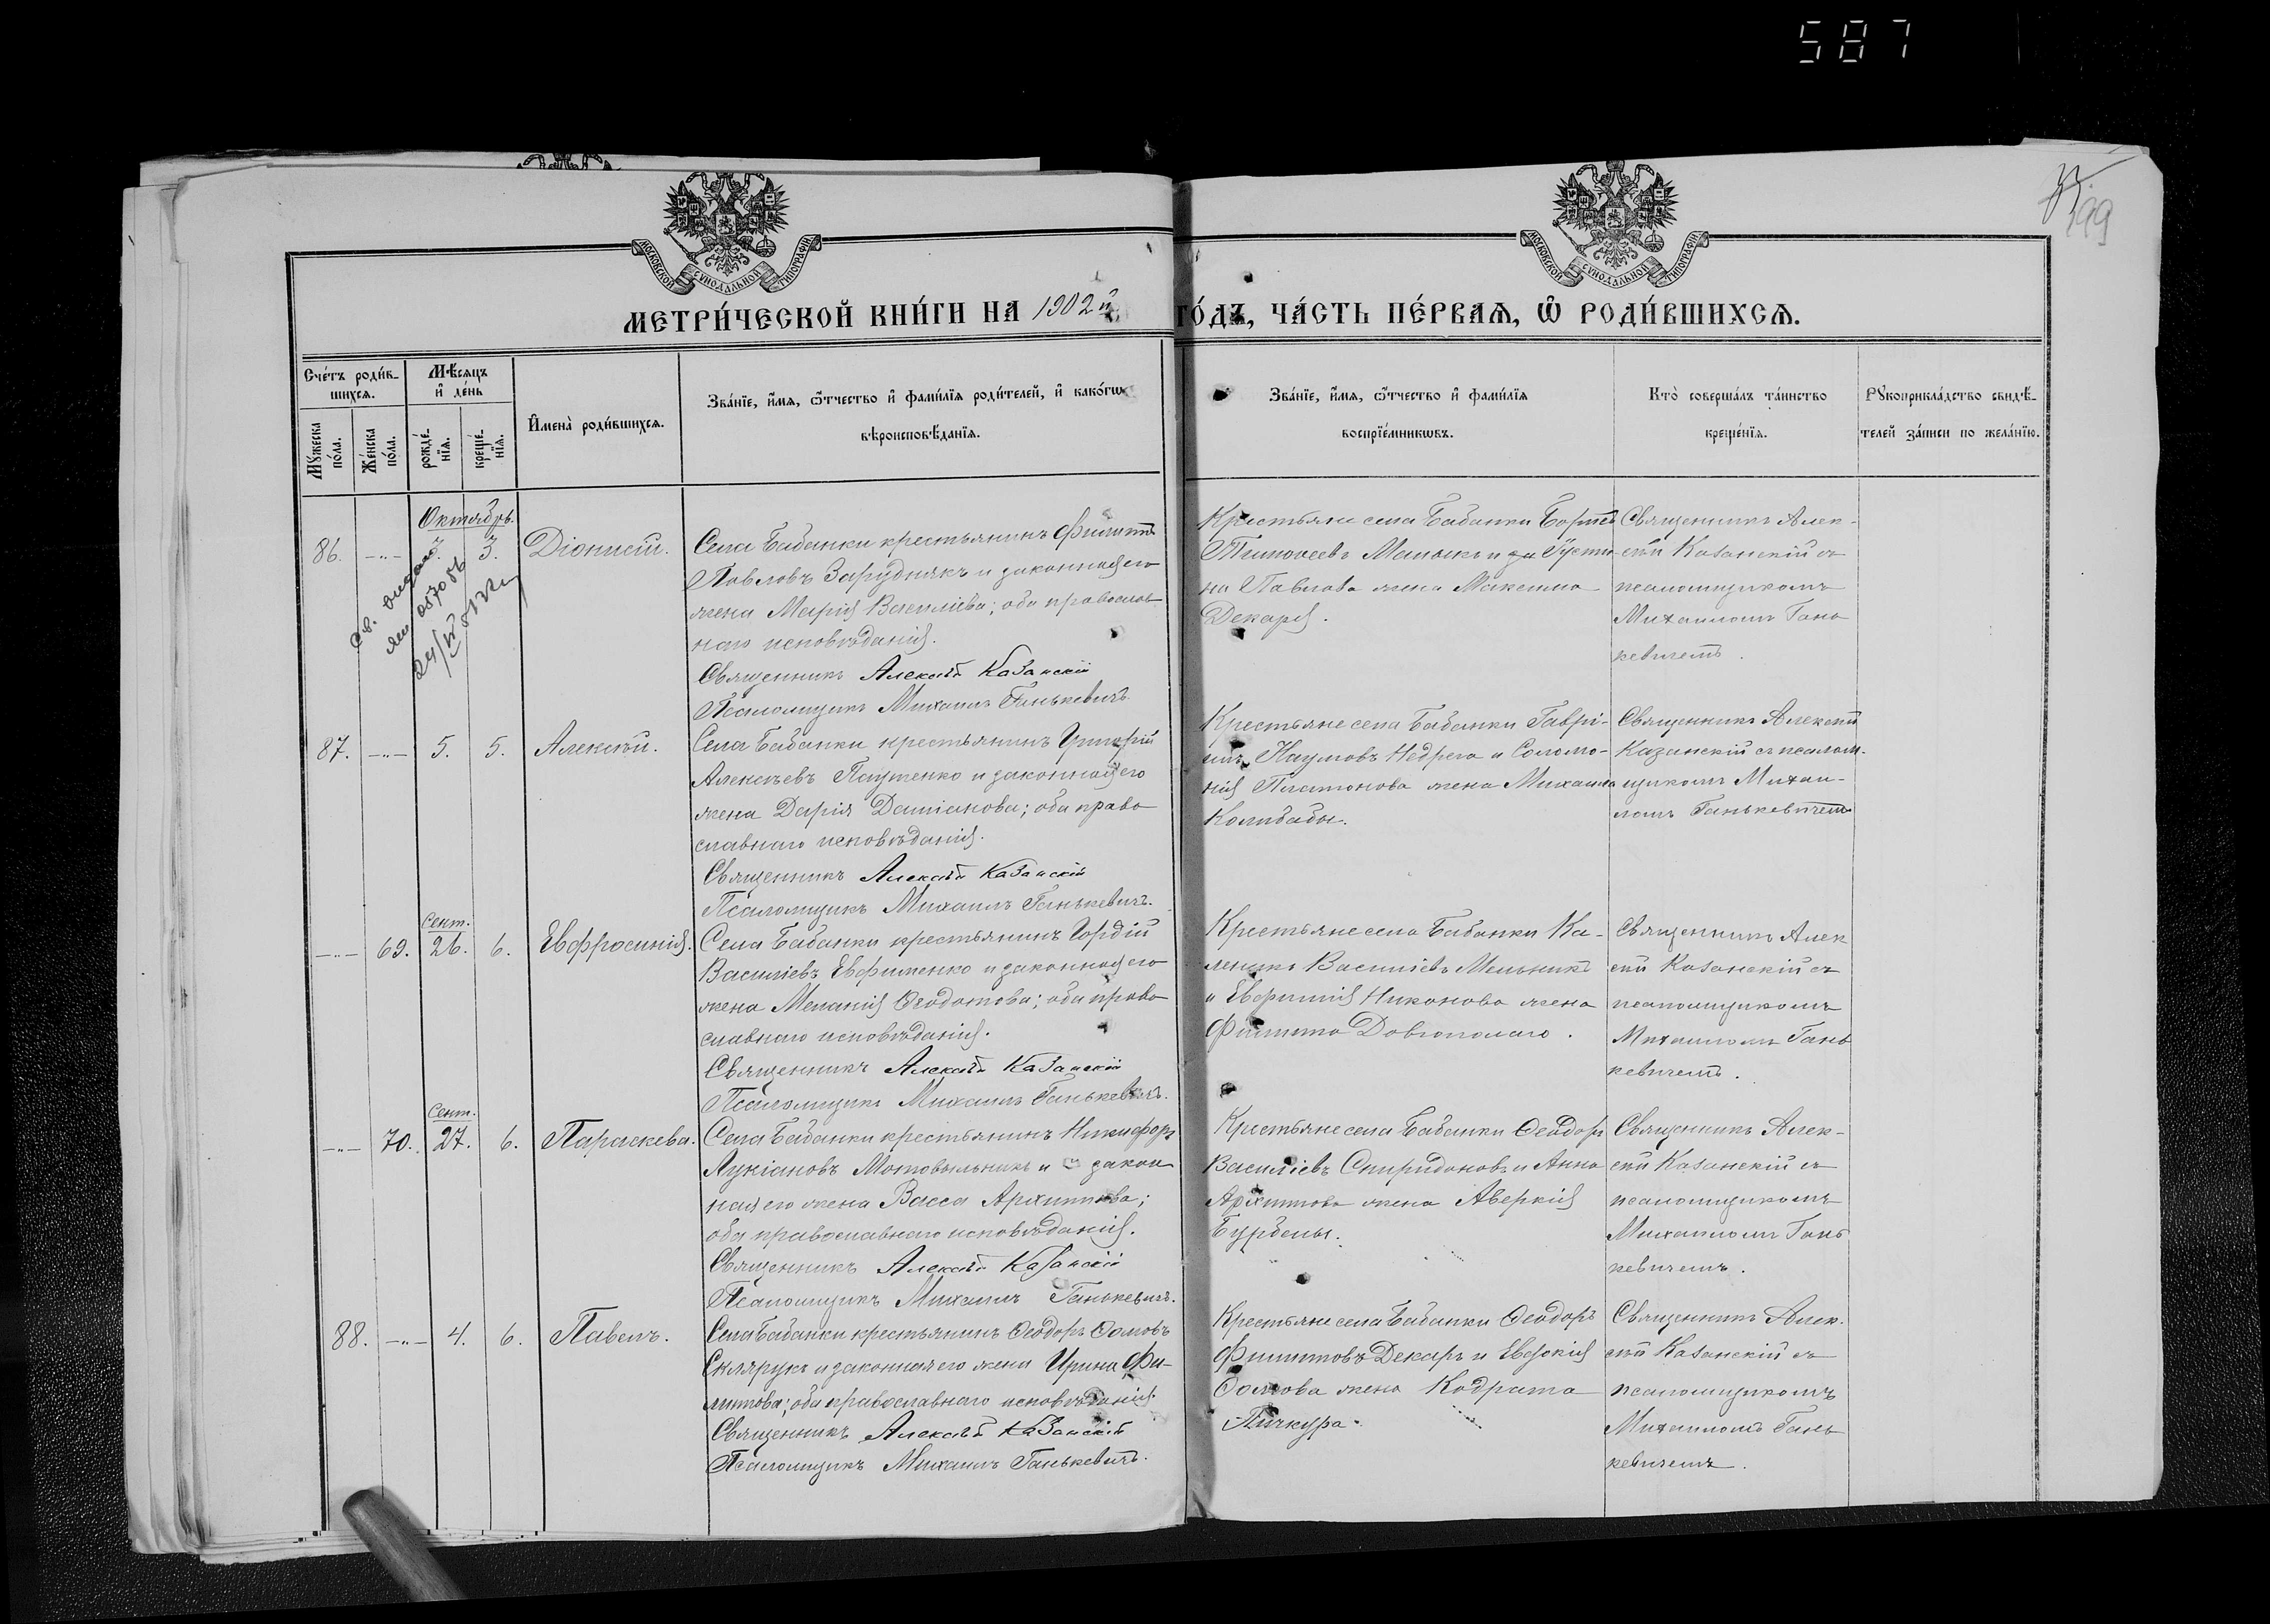 587
99
МОСКОВСКОЙ СѴНОДАЛЬНОЙ ТИПОГРАФІИ
МОСКОВСКОЙ СѴНОДАЛЬНОЙ ТИПОГРАФІИ
МЕТРИ́ЧЕСКОЙ КНИ́ГИ НА 1902й ГО́ДЪ, ЧА́СТЬ ПЕ́РВАѦ, Ѿ РОДИ́ВШИХСѦ.
Сче́тъ роди́в-
шихсѧ.
Мꙋ́жеска по́ла.
Же́нска по́ла.
Мѣ́сѧцъ
и҆ де́нь
рожде́-нїѧ.
креще́-нїѧ.
И҆мена̀ роди́вшихсѧ.
Зва́нїе, и҆́мѧ, ѻ҆́тчество и҆ фами́лїѧ роди́телей, и҆ како́гѡ
вѣроисповѣ́данїѧ.
Зва́нїе, и҆́мѧ, ѻ҆́тчество и҆ фами́лїѧ
воспрїе́мникѡвъ.
Кто̀ соверша́лъ та́инство
креще́нїѧ.
Рꙋкоприкла́дство свидѣ́-
телей за́писи по жела́нїю.
Октябрь.
86. —„— 3. Діонисій.
Села Бабанки крестьянинъ Филиппъ
Павловъ Заруднякъ и законная его
жена Марія Василіева; оба православ
наго исповѣданія.
Священникъ Алексѣй Казанскій
Псаломщикъ Михаилъ Ганькевичъ.
Крестьяне села Бабанки
Тимоѳеевъ и
на Павлова жена Максима
Декаря.
Священникъ Алек-
сѣй Казанскій съ
псаломщикомъ
Михаиломъ Гань
кевичемъ.
87. —„— 5. 5. Алексѣй.
Села Бабанки крестьянинъ Григорій
Алексѣевъ Паутенко и законная его
жена Дарія Даміанова; оба право
славнаго исповѣданія.
Священникъ Алексѣй Казанскій
Псаломщикъ Михаилъ Ганькевичъ.
Крестьяне села Бабанки Гаврі-
илъ Наумовъ Недрега и Соломо-
нія Платонова жена Михаила
Колибабы.
Священникъ Алексѣй
Казанскій съ псалом-
щикомъ Михаи-
ломъ Ганькевичемъ
—„— 69. Сент. 26. 6. Евфросинія.
Села Бабанки крестьянинъ Гордій
Василіевъ Ефименко и законная его
жена Меланія Ѳеодотова; оба право
славнаго исповѣданія.
Священникъ Алексѣй Казанскій
Псаломщикъ Михаилъ Ганькевичъ.
Крестьяне села Бабанки Ка-
леникъ Василіевъ Мельникъ
и Евфимія Никонова жена
Филиппа Довгополаго.
Священникъ Алек
сѣй Казанскій съ
псаломщикомъ
Михаиломъ Гань
кевичемъ.
—„— 70. Сент. 27. 6. Параскева.
Села Бабанки крестьянинъ Никифоръ
Лукіановъ Мотовильникъ и закон
ная его жена Васса Архиппова;
оба православнаго исповѣданія.
Священникъ Алексѣй Казанскій
Псаломщикъ Михаилъ Ганькевичъ.
Крестьяне села Бабанки Ѳеодоръ
Василіевъ Спиридоновъ и Анна
Архиппова жена Аверкія
Бурбелы.
Священникъ Алек-
сѣй Казанскій съ
псаломщикомъ
Михаиломъ Гань
кевичемъ.
88. —„— 4. 6. Павелъ.
Села Бабанки крестьянинъ Ѳеодоръ Ѳомовъ
Склярукъ и законная его жена Ирина Фи-
липпова; оба православнаго исповѣданія.
Священникъ Алексѣй Казанскій
Псаломщикъ Михаилъ Ганькевичъ.
Крестьяне села Бабанки Ѳеодоръ
Филипповъ Декарь и Евдокія
Ѳомова жена Кодрата
Пичкура.
Священникъ Алек.
сѣй Казанскій съ
псаломщикомъ
Михаиломъ Гань
кевичемъ.